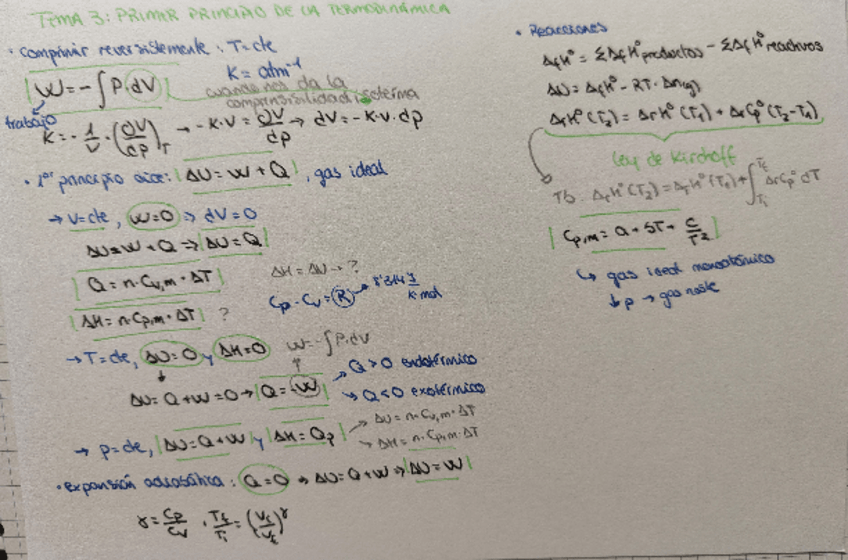 TEMA 3: PRIMER PRINCIPIO DE LA TERMODINÁMICA
· comprimir reversiblemente: T=cte
W = -∫P·dV
K = atm⁻¹
cuando nos da la
compresibilidad isoterma
trabajo
K = -1/V · (∂V/∂p)_T → -K·V = ∂V/dp → dV = -K·V·dp
· 1er principio dice: ΔU = W + Q, gas ideal
→ V=cte, W=0 ⇒ dV=0
ΔU=W+Q → ΔU=Q
Q = n·Cv,m·ΔT
ΔH = ΔU → ?
Cp - Cv = R → 8'314 J/K·mol
ΔH = n·Cp,m·ΔT ?
→ T=cte, ΔU=0 y ΔH=0
W = -∫P·dV
ΔU = Q+W=0 → Q=-W
Q>0 endotérmico
Q<0 exotérmico
→ p=cte, ΔU=Q+W y ΔH=Qp
ΔU = n·Cv,m·ΔT
ΔH = n·Cp,m·ΔT
· expansión adiabática: Q=0 → ΔU=Q+W ⇒ ΔU=W
γ = Cp/Cv · Tf/Ti = (Vi/Vf)^γ
· Reacciones
ΔrH° = ΣΔfH° productos - ΣΔfH° reactivos
ΔU = ΔrH° - RT·Δn(g)
ΔrH°(T₂) = ΔrH°(T₁) + ΔrCp°(T₂-T₁)
Ley de Kirchoff
Tb. ΔrH°(T₂) = ΔrH°(T₁) + ∫ ΔrCp° dT
Cp,m = a + bT + c/T²
↳ gas ideal monoatómico
↓p → gas noble